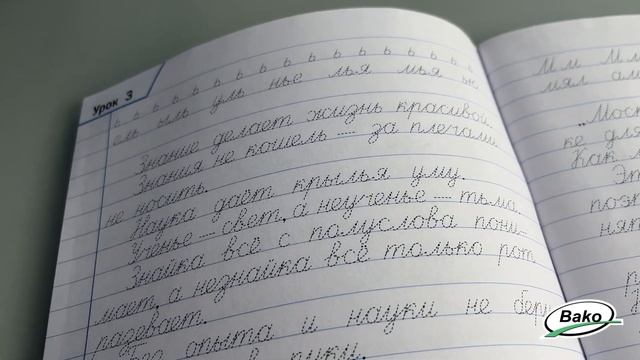 Урок 3
ь ь ь ь ь ь ь ь ь ь ь ь ь ь ь ь ь
оль ыль уль нье лья мья ью
Знание делает жизнь красивой.
Знания не кошель — за плечами
не носить.
Наука даёт крылья уму.
Ученье — свет, а неученье — тьма.
Знайка всё с полуслова пони-
мает, а незнайка всё только рот
разевает.
опыта и науки не
руки.
Мм Мм
мял ам
Моск
ке дл
Как
Эт
поэт
нят
Bako